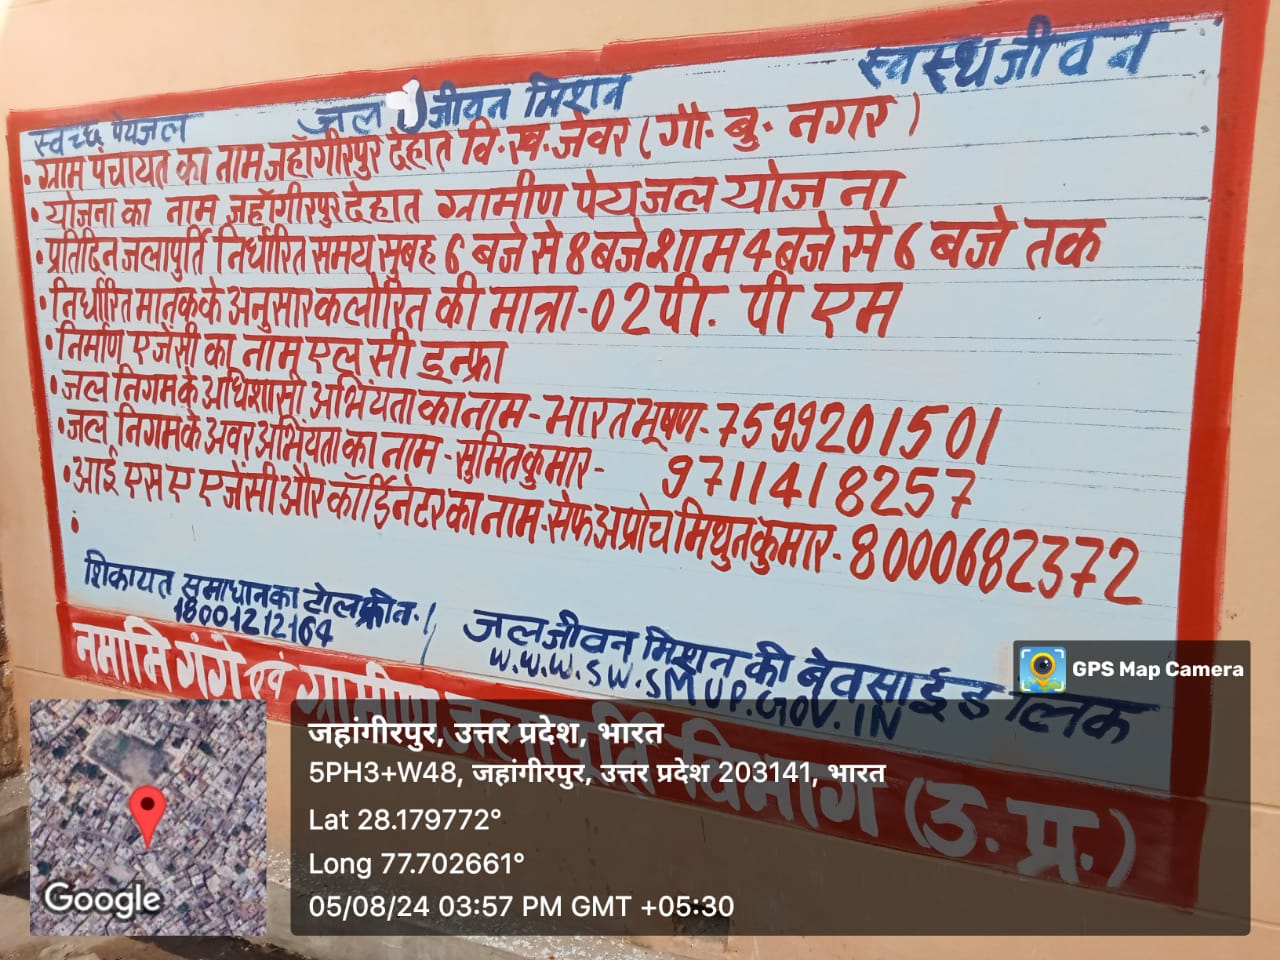 स्वच्छ पेयजल जल जीवन मिशन स्वस्थ जीवन
• ग्राम पंचायत का नाम जहाँगीरपुर देहात वि.ख.जेवर (गौ. बु. नगर)
• योजना का नाम जहाँगीरपुर देहात ग्रामीण पेयजल योजना
• प्रतिदिन जलापुर्ति निर्धारित समय सुबह 6 बजे से 8 बजे शाम 4 बजे से 6 बजे तक
• निर्धारित मानक के अनुसार कलोरित की मात्रा - 02 पी. पी एम
• निर्माण एजेंसी का नाम एल सी इन्फ्रा
• जल निगम के अधिशासी अभियंता का नाम - भारत भूषण - 7599201501
• जल निगम के अवर अभियंता का नाम - सुमित कुमार - 9711418257
• आई एस ए एजेंसी और कॉर्डिनेटर का नाम - सेफ अप्रोच मिथुन कुमार - 8000682372
शिकायत समाधान का टोल फ्री न. /
18001212164
जल जीवन मिशन की बेवसाईड लिंक
W.W.W.SW.SMUP.GOV.IN
नमामि गंगे एवं ग्रामीण जलापूर्ति विभाग (उ.प्र.)
GPS Map Camera
जहांगीरपुर, उत्तर प्रदेश, भारत
5PH3+W48, जहांगीरपुर, उत्तर प्रदेश 203141, भारत
Lat 28.179772°
Long 77.702661°
05/08/24 03:57 PM GMT +05:30
Google